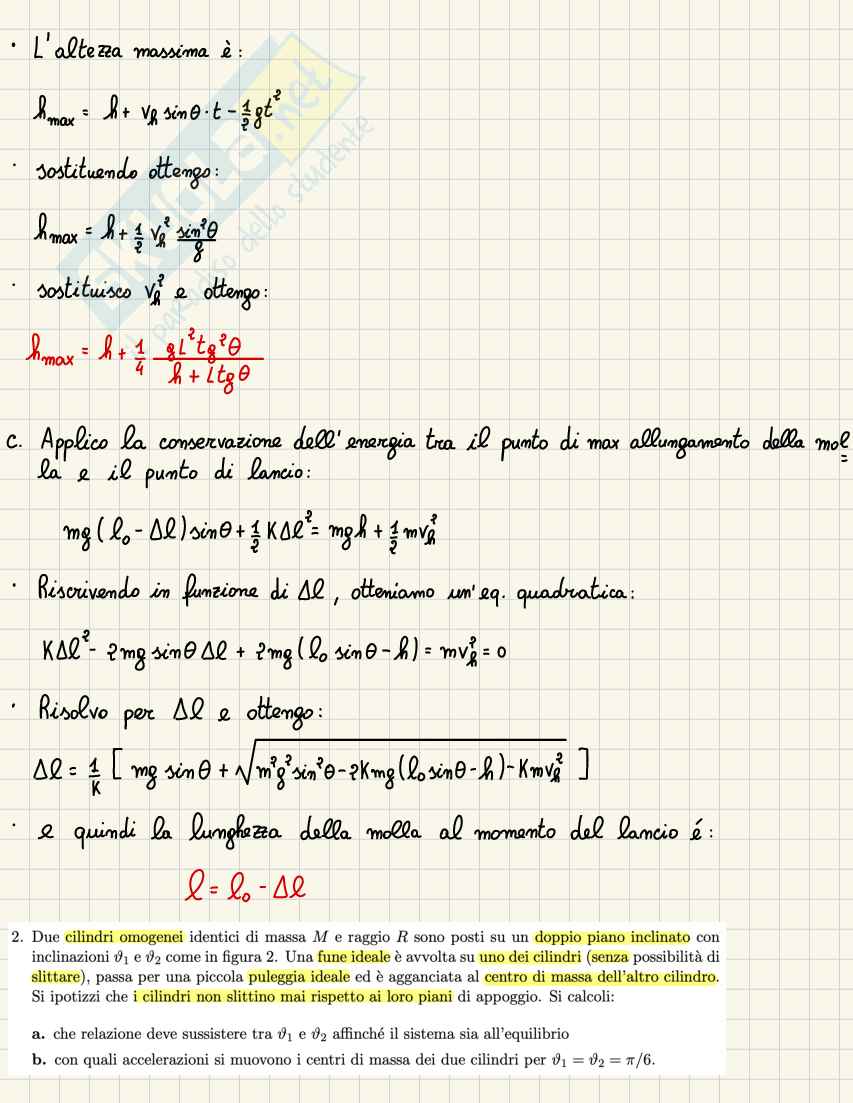 · L'altezza massima è:
h_max = h + v_h sinθ · t - 1/2 gt²
· sostituendo ottengo:
h_max = h + 1/2 v_h² sin²θ/g
· sostituisco v_h² e ottengo:
h_max = h + 1/4 gL²tg²θ/(h + Ltgθ)
c. Applico la conservazione dell'energia tra il punto di max allungamento della mol
la e il punto di lancio:
mg(l₀ - Δl)sinθ + 1/2 KΔl² = mgh + 1/2 mv_h²
· Riscrivendo in funzione di Δl, otteniamo un'eq. quadratica:
KΔl² - 2mg sinθ Δl + 2mg(l₀ sinθ - h) = mv_h² = 0
· Risolvo per Δl e ottengo:
Δl = 1/K [ mg sinθ + √(m²g²sin²θ - 2Kmg(l₀sinθ - h) - Kmv_h²) ]
· e quindi la lunghezza della molla al momento del lancio é:
l = l₀ - Δl
2. Due cilindri omogenei identici di massa M e raggio R sono posti su un doppio piano inclinato con
inclinazioni ϑ₁ e ϑ₂ come in figura 2. Una fune ideale è avvolta su uno dei cilindri (senza possibilità di
slittare), passa per una piccola puleggia ideale ed è agganciata al centro di massa dell'altro cilindro.
Si ipotizzi che i cilindri non slittino mai rispetto ai loro piani di appoggio. Si calcoli:
a. che relazione deve sussistere tra ϑ₁ e ϑ₂ affinché il sistema sia all'equilibrio
b. con quali accelerazioni si muovono i centri di massa dei due cilindri per ϑ₁ = ϑ₂ = π/6.
SKUOLA.net
il paradiso dello studente